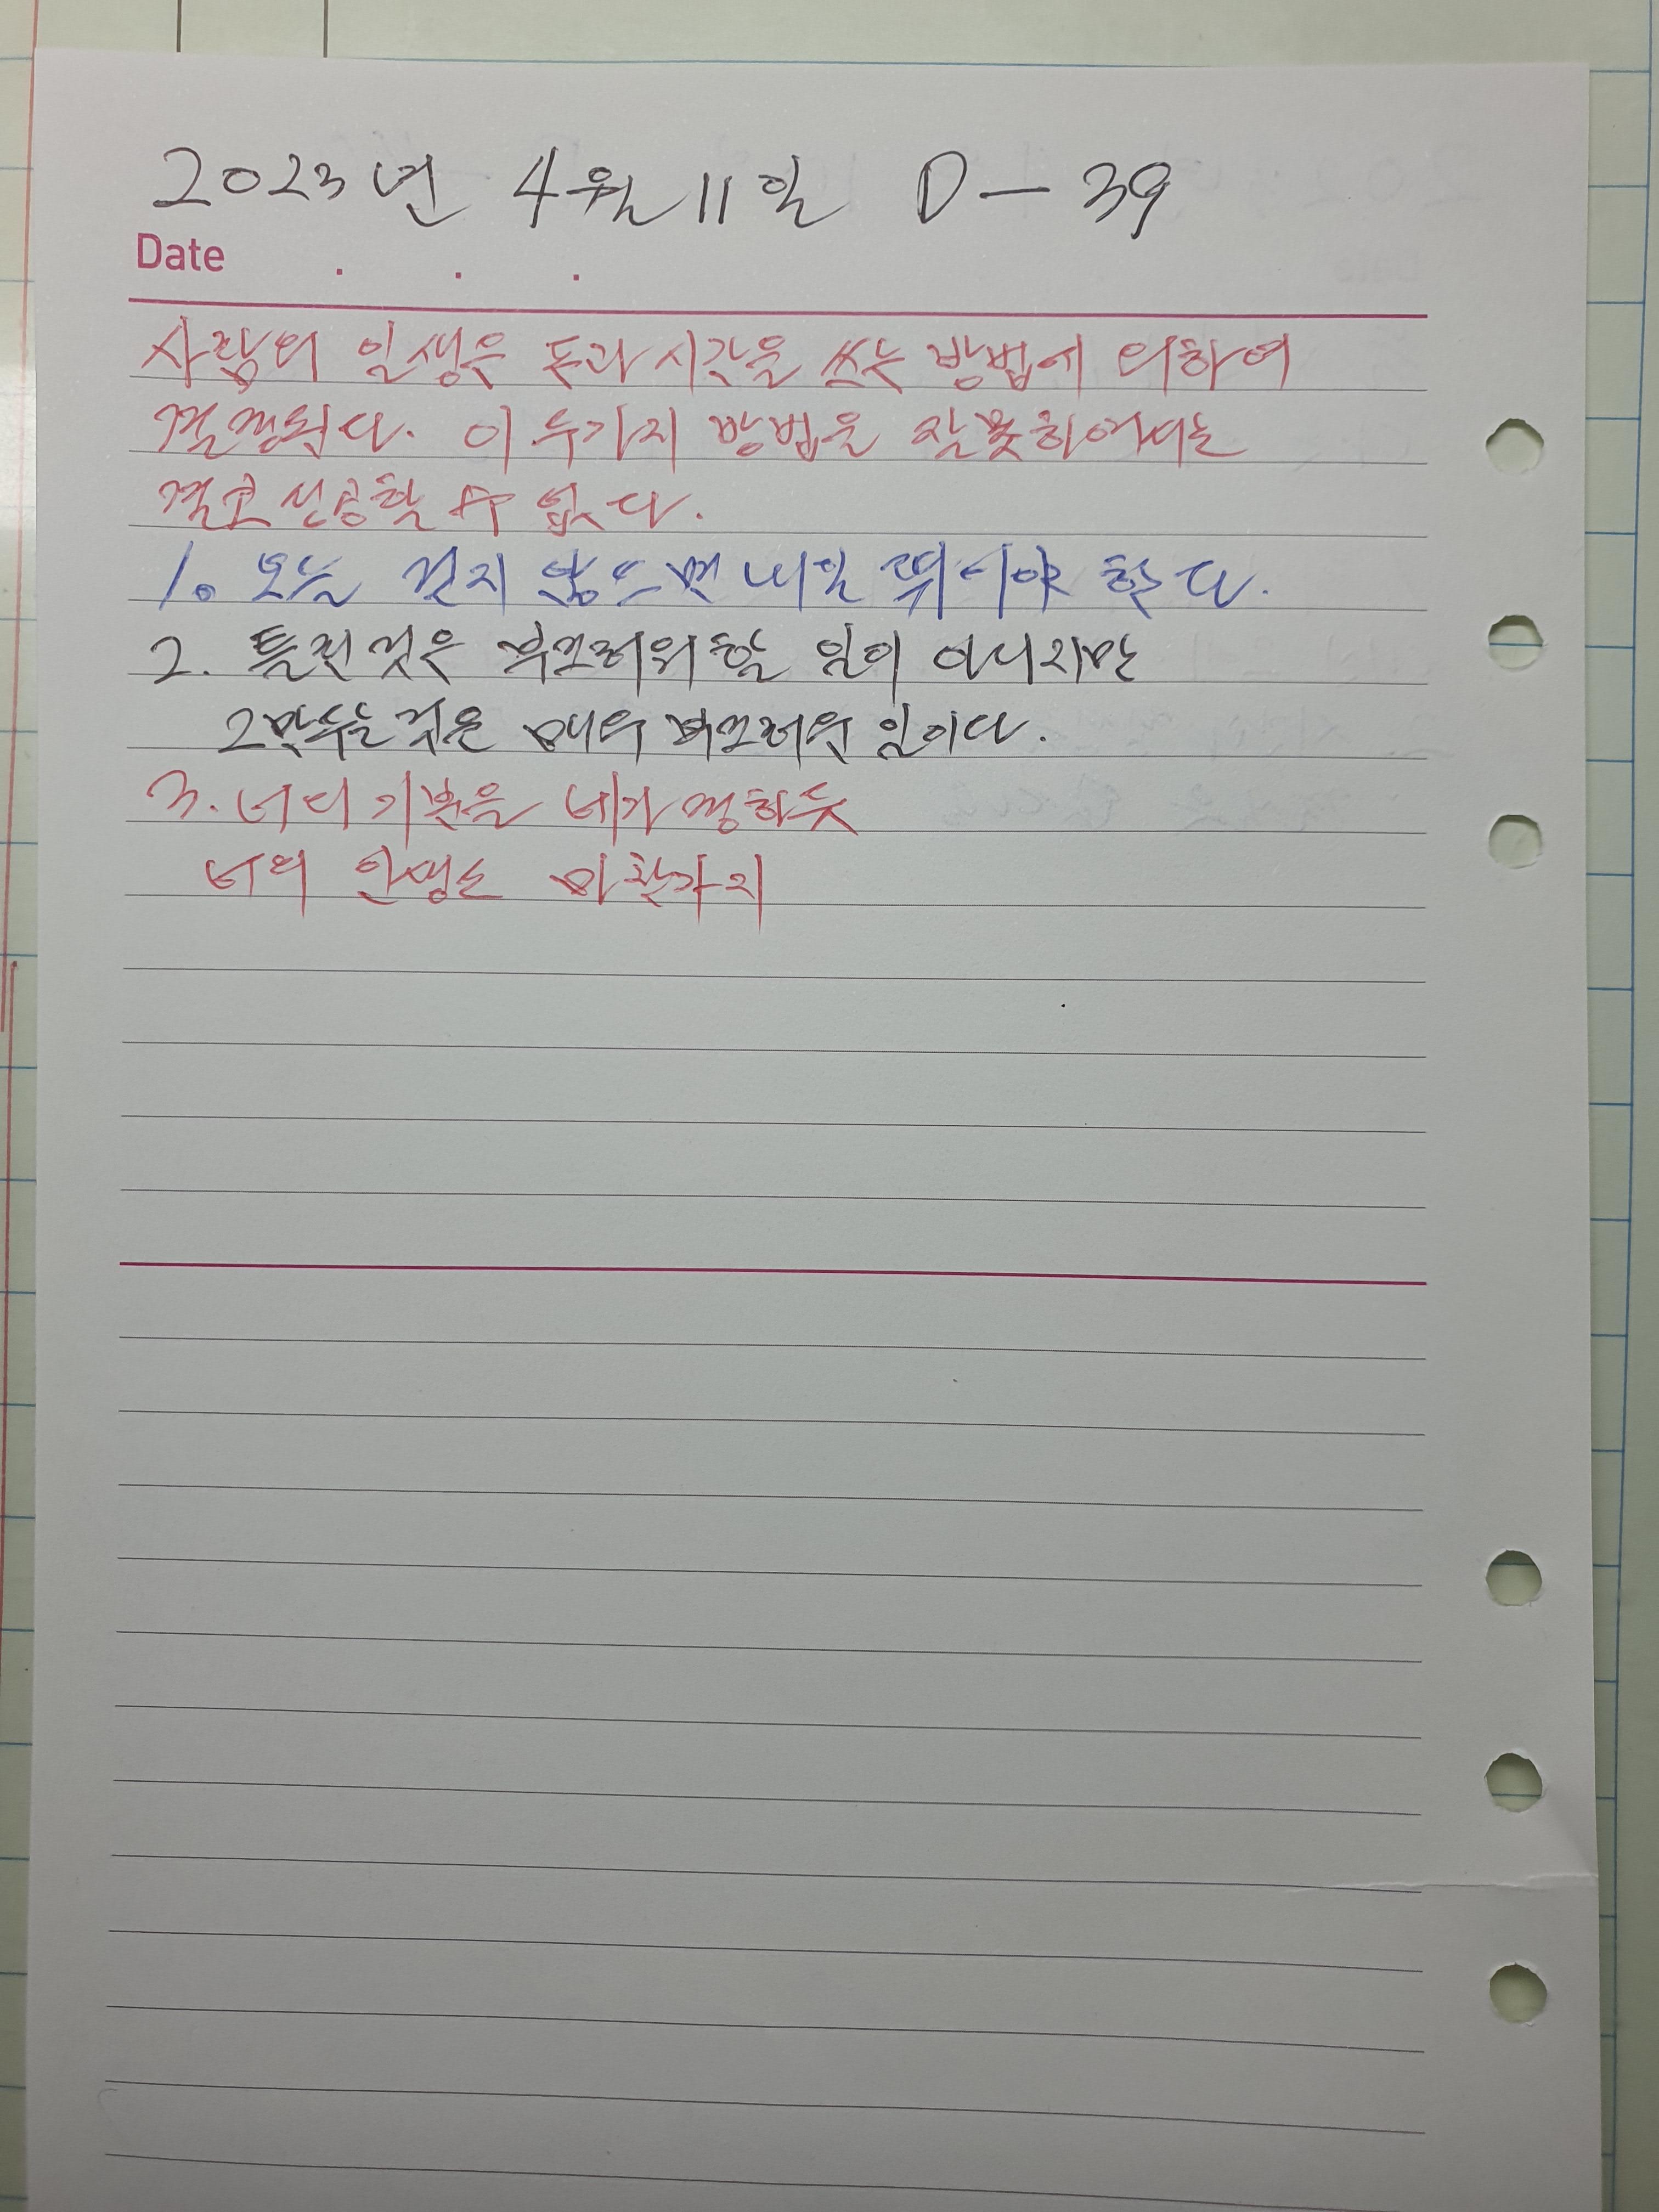 2023년 4월 11일 D-39
Date . . .
사람의 일생은 돈과 시간을 쓰는 방법에 의하여
결정된다. 이 두가지 방법을 잘못하여서는
결코 성공할 수 없다.
1. 오늘 걷지 않으면 내일 뛰어야 한다.
2. 틀린 것은 부끄러워할 일이 아니지만
그만두는 것은 매우 부끄러운 일이다.
3. 너의 기분을 네가 정하듯
너의 인생도 마찬가지